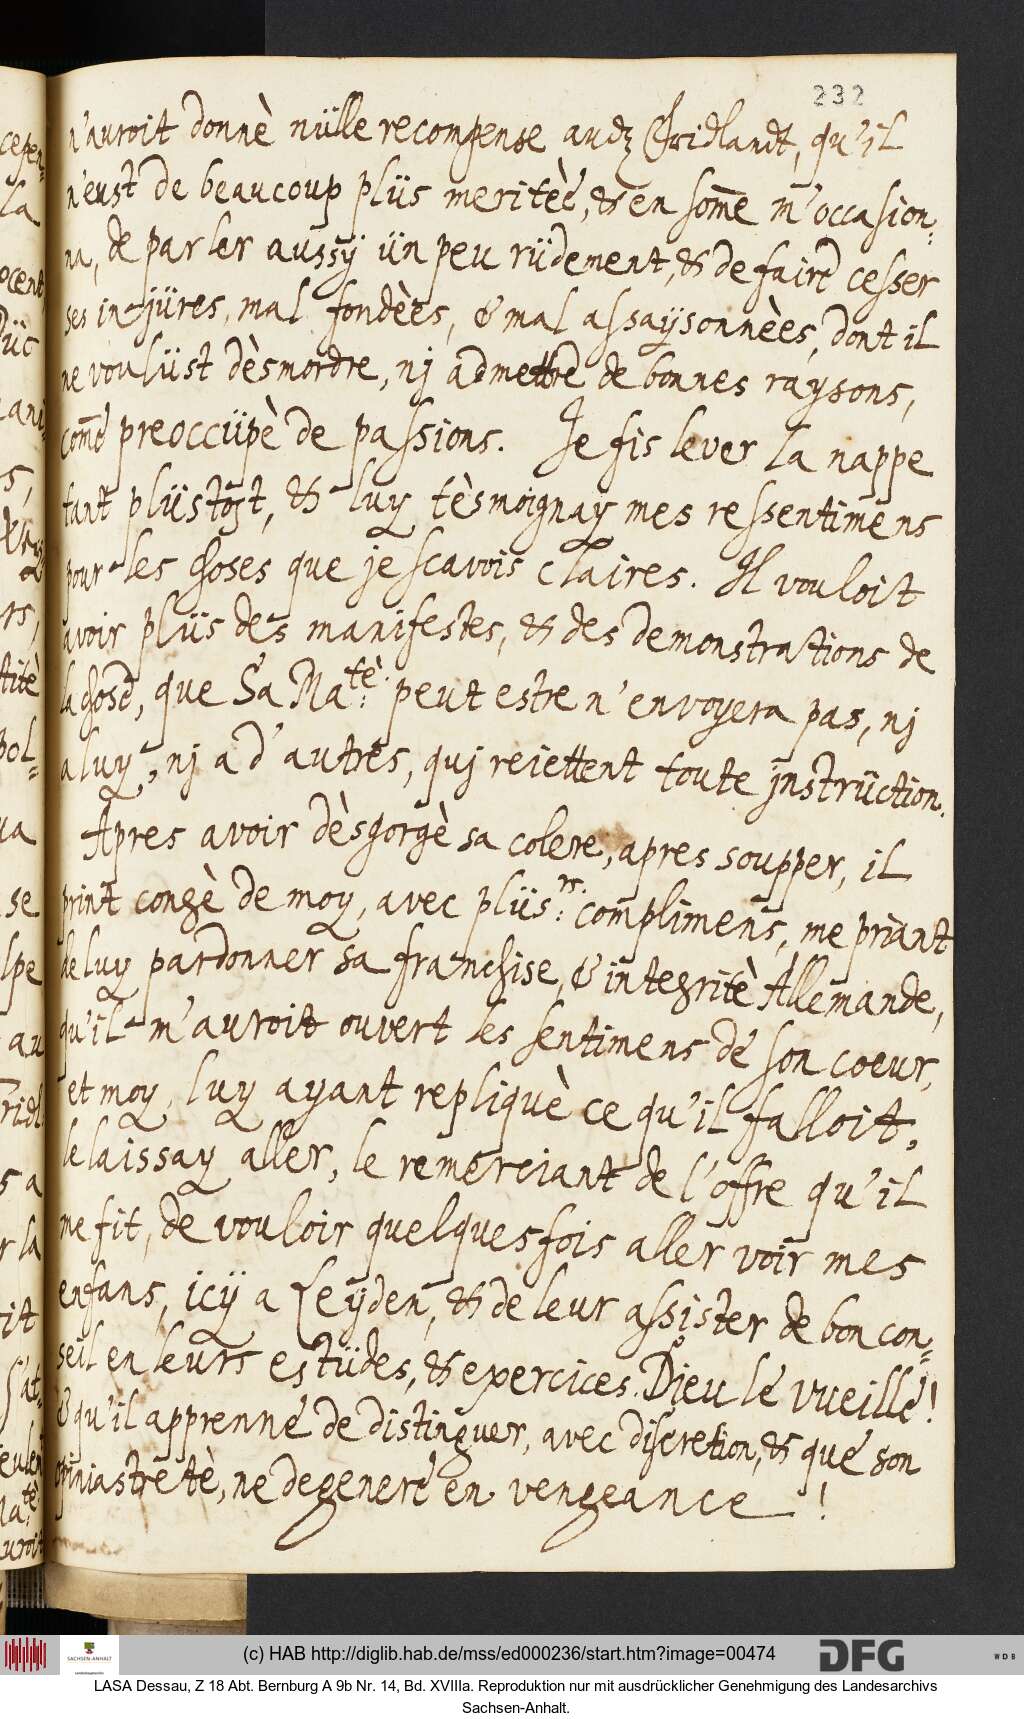 232
n'auroit donnè nülle recompense audz Fridlandt, qu'il
n'eust de beaucoup plüs meritèe, & en som̄e m'occasion:
na, de parler aussÿ ün peu rüdement, & de faire cesser
ses injüres, mal fondèes, & mal assaÿsonnèes, dont il
ne voulüst dèsmordre, nj admettre de bonnes raysons,
com̄e preoccüpè de passions. Je fis lever la nappe
tant plüstost, & luy tèsmoignay mes ressentimens
pour les choses que je scavois claires. Il vouloit
avoir plüs des manifestes, & des demonstrations de
la chose, que Sa Ma:tè peut estre n'envoyera pas, nj
a luy, nj a d'autres, quj reiettent toute jnstrüction.
Apres avoir dèsgorgè sa colere, apres soupper, il
print congè de moy, avec plüs:rs. complimens, me priant
de luy pardonner sa franchise, & integritè Allemande,
qu'il m'auroit ouvert les sentimens de son coeur,
et moy, luy ayant repliquè ce qu'il falloit,
le laissay aller, le remerciant de l'offre qu'il
me fit, de vouloir quelquesfois aller voir mes
enfans, icÿ a Leÿden, & de leur assister de bon con=
seil en leurs estüdes, & exercices. Dieu le vueille!
& qu'il apprenne de distinguer, avec discretion, & que son
opiniastretè, ne degenere en vengeance!
(c) HAB http://diglib.hab.de/mss/ed000236/start.htm?image=00474
SACHSEN-ANHALT
DFG
WDB
LASA Dessau, Z 18 Abt. Bernburg A 9b Nr. 14, Bd. XVIIIa. Reproduktion nur mit ausdrücklicher Genehmigung des Landesarchivs
Sachsen-Anhalt.